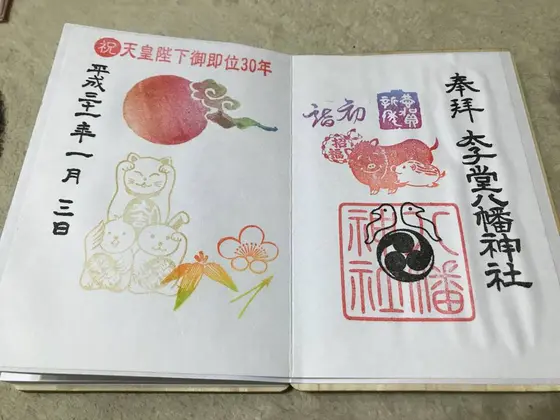 奉拝 太子堂八幡神社
恭賀
新年
初詣
招福
八幡
神社
祝 天皇陛下御即位30年
平成三十一年一月三日